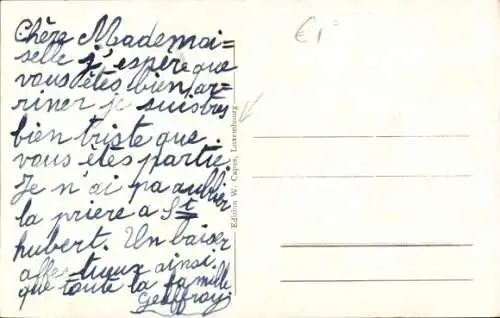 Chère Mademoi=
selle j'espère que
vous êtes bien ar=
riner je suis trés
bien triste que
vous êtes partie
Je n'ai pa aublier
la priere a St
hubert. Un baiser
affectueux ainsi
que toute la famille
Geoffroy
Edition W. Capus, Luxembourg
€1=